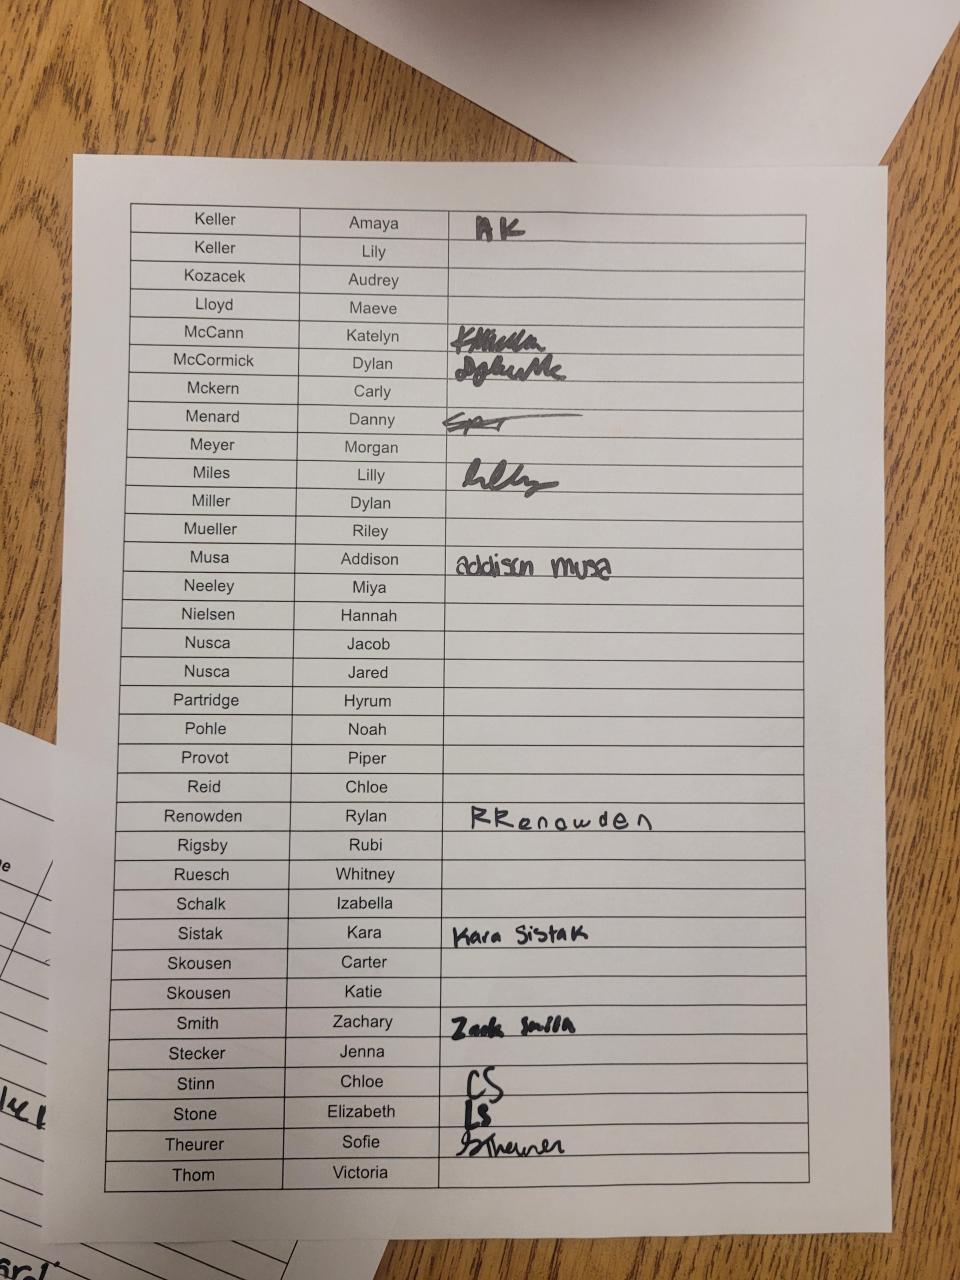 Keller Amaya AK
Keller Lily
Kozacek Audrey
Lloyd Maeve
McCann Katelyn
McCormick Dylan
Mckern Carly
Menard Danny
Meyer Morgan
Miles Lilly
Miller Dylan
Mueller Riley
Musa Addison addison musa
Neeley Miya
Nielsen Hannah
Nusca Jacob
Nusca Jared
Partridge Hyrum
Pohle Noah
Provot Piper
Reid Chloe
Renowden Rylan RRenowden
Rigsby Rubi
Ruesch Whitney
Schalk Izabella
Sistak Kara Kara Sistak
Skousen Carter
Skousen Katie
Smith Zachary
Stecker Jenna
Stinn Chloe CS
Stone Elizabeth LS
Theurer Sofie STheurer
Thom Victoria